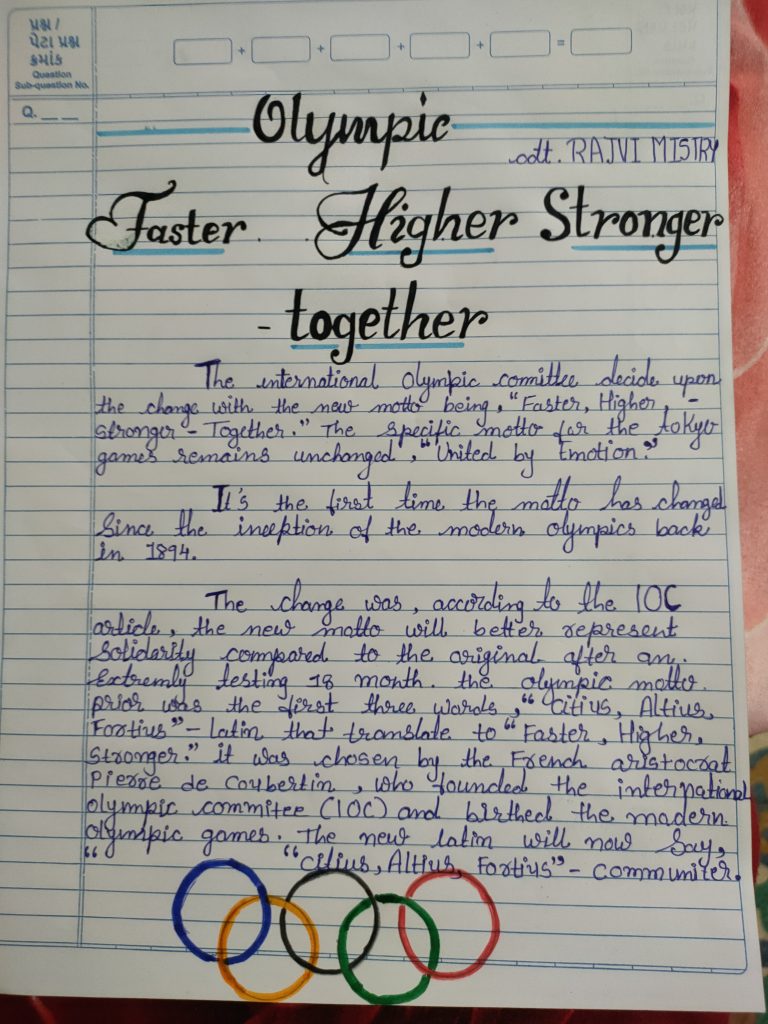 પ્રશ્ન /
પેટા પ્રશ્ન
ક્રમાંક
Question
Sub-question No.
+ + + + =
Q. __ __
Olympic
cdt. RAJVI MISTRY
Faster Higher Stronger
- together
The international Olympic comittee decide upon
the change with the new motto being, "Faster, Higher, -
Stronger - Together." The specific motto for the tokyo
games remains unchanged, "United by Emotion."
It's the first time the motto has changed
Since the inception of the modern olympics back
in 1894.
The change was, according to the IOC
article, the new motto will better represent
Solidarity compared to the original after an.
Extremly testing 18 month. the olympic motto.
prior was the first three words, "Citius, Altius,
Fortius" - latin that translate to "Faster, Higher,
Stronger." it was chosen by the French aristocrat
Pierre de Coubertin, who founded the international
olympic commitee (IOC) and birthed the modern
olympic games. The new latin will now Say,
" "Citius, Altius, Fortius" - communiter.